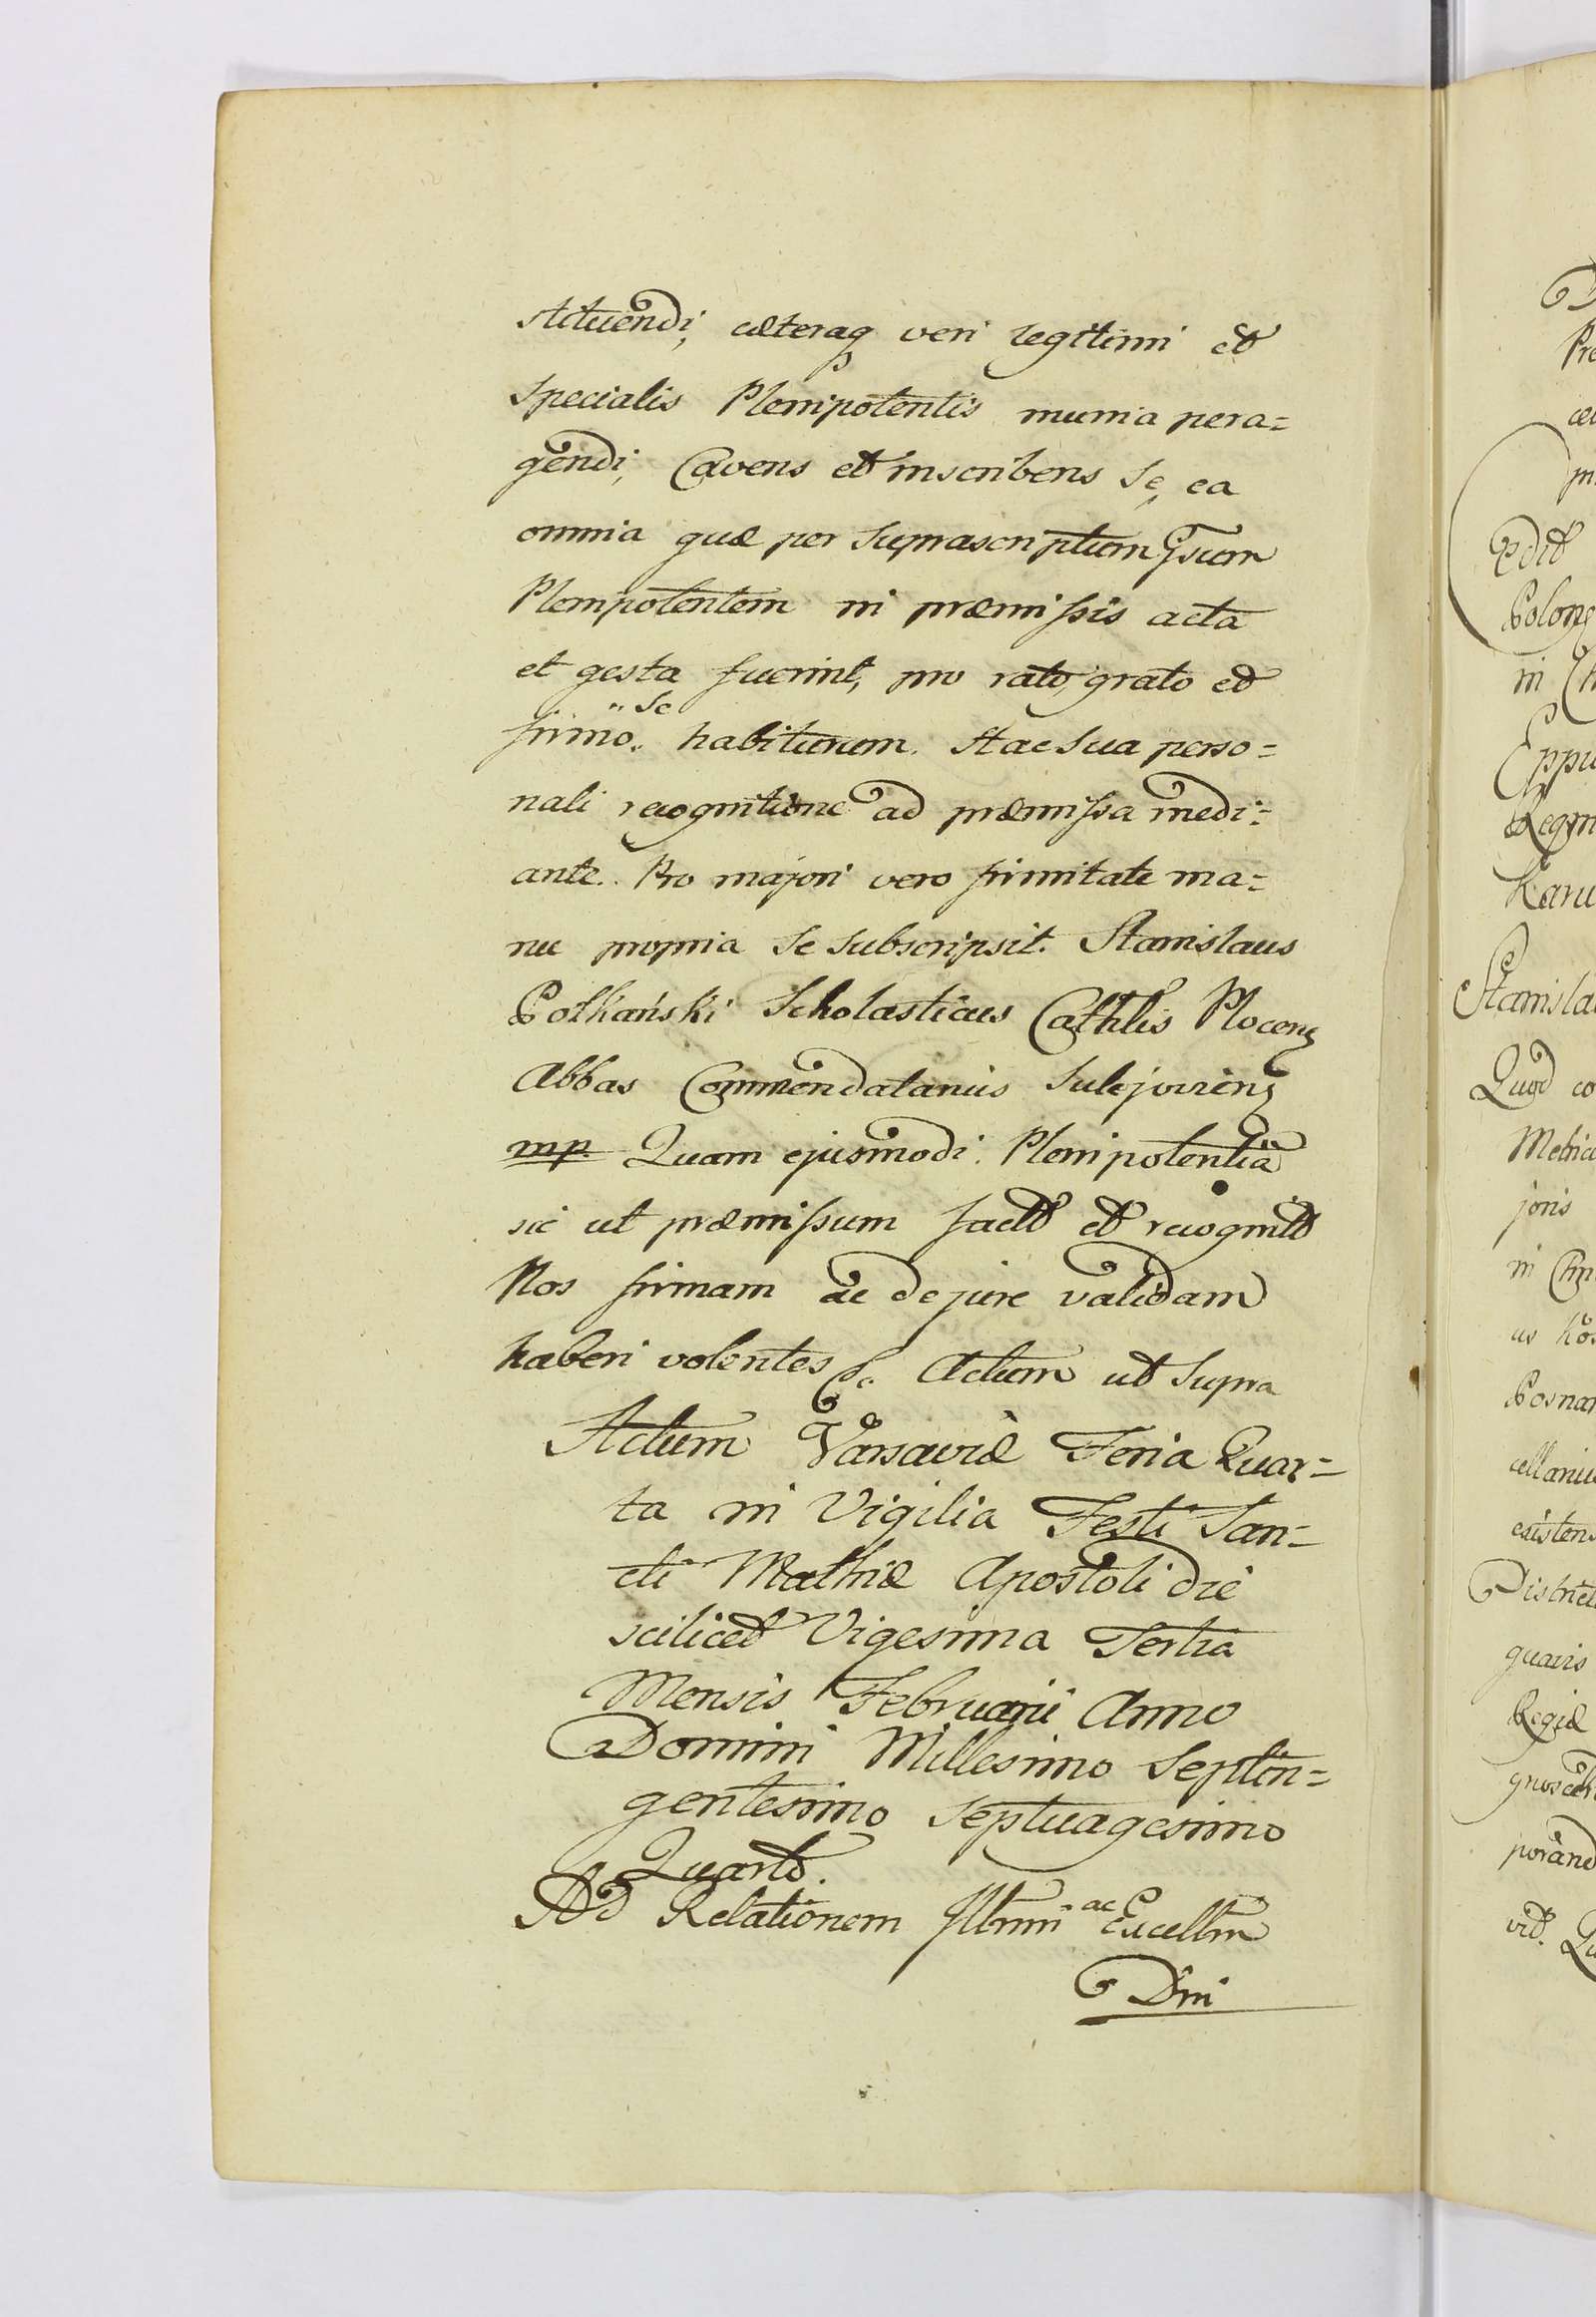 stituendi, cæteraq veri legitimi et
Specialis Plenipotentis munia pera=
gendi, Cavens et inscribens Se, ea
omnia quæ per Suprascriptum Gsum
Plenipotentem in præmissis acta
et gesta fuerint, pro rato, grato et
Se
firmo habiturum. Hac Sua perso=
nali recognitione ad præmissa medi=
ante. Pro majori vero firmitate ma=
nu propria Se Subscripsit. Stanislaus
Potkański Scholasticus Cathlis Plocens
Abbas Commendatarius Sulejoviens
mp. Quam ejusmodi Plenipotentiã
sic ut præmissum fact et recognit
Nos firmam ac de jure validam
haberi volentes &c. Actum ut Supra
Actum Varsaviæ Feria Quar=
ta in Vigilia Festi San=
cti Mathiæ Apostoli die
scilicet Vigesima Tertia
Mensis Februarii Anno
Domini Millesimo Septin=
gentesimo Septuagesimo
Quarto.
Ad Relationem Illmi ac Excellmi
Dni
Edit
Polon
in
Karu
Stanisla
Quod co
Metric
joris
in
Posnan
cellariu
existen
District
quavis
Regiæ
vid. Qu